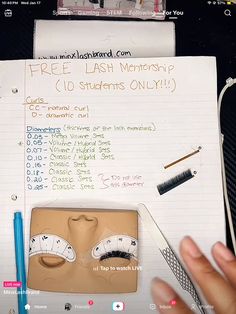 10:40 PM Wed Jan 17
Sports Gaming STEM Following For You
www.minxlashbrand.com
FREE LASH Mentorship
(10 Students ONLY!!!)
Curls
CC - natural curl
D - dramatic curl
Diameters (thickness of the lash extensions)
0.03 - Mega Volume Sets
0.05 - Volume / Hybrid Sets
0.07 - Volume / Hybrid Sets
0.10 - Classic / Hybrid Sets
0.15 - Classic Sets
0.18 - Classic Sets
0.20 - Classic Sets Do not use
0.25 - Classic Sets this diameter
Tap to watch LIVE
LIVE now
MinxLashbrand
Home
Friends
Inbox
Profile